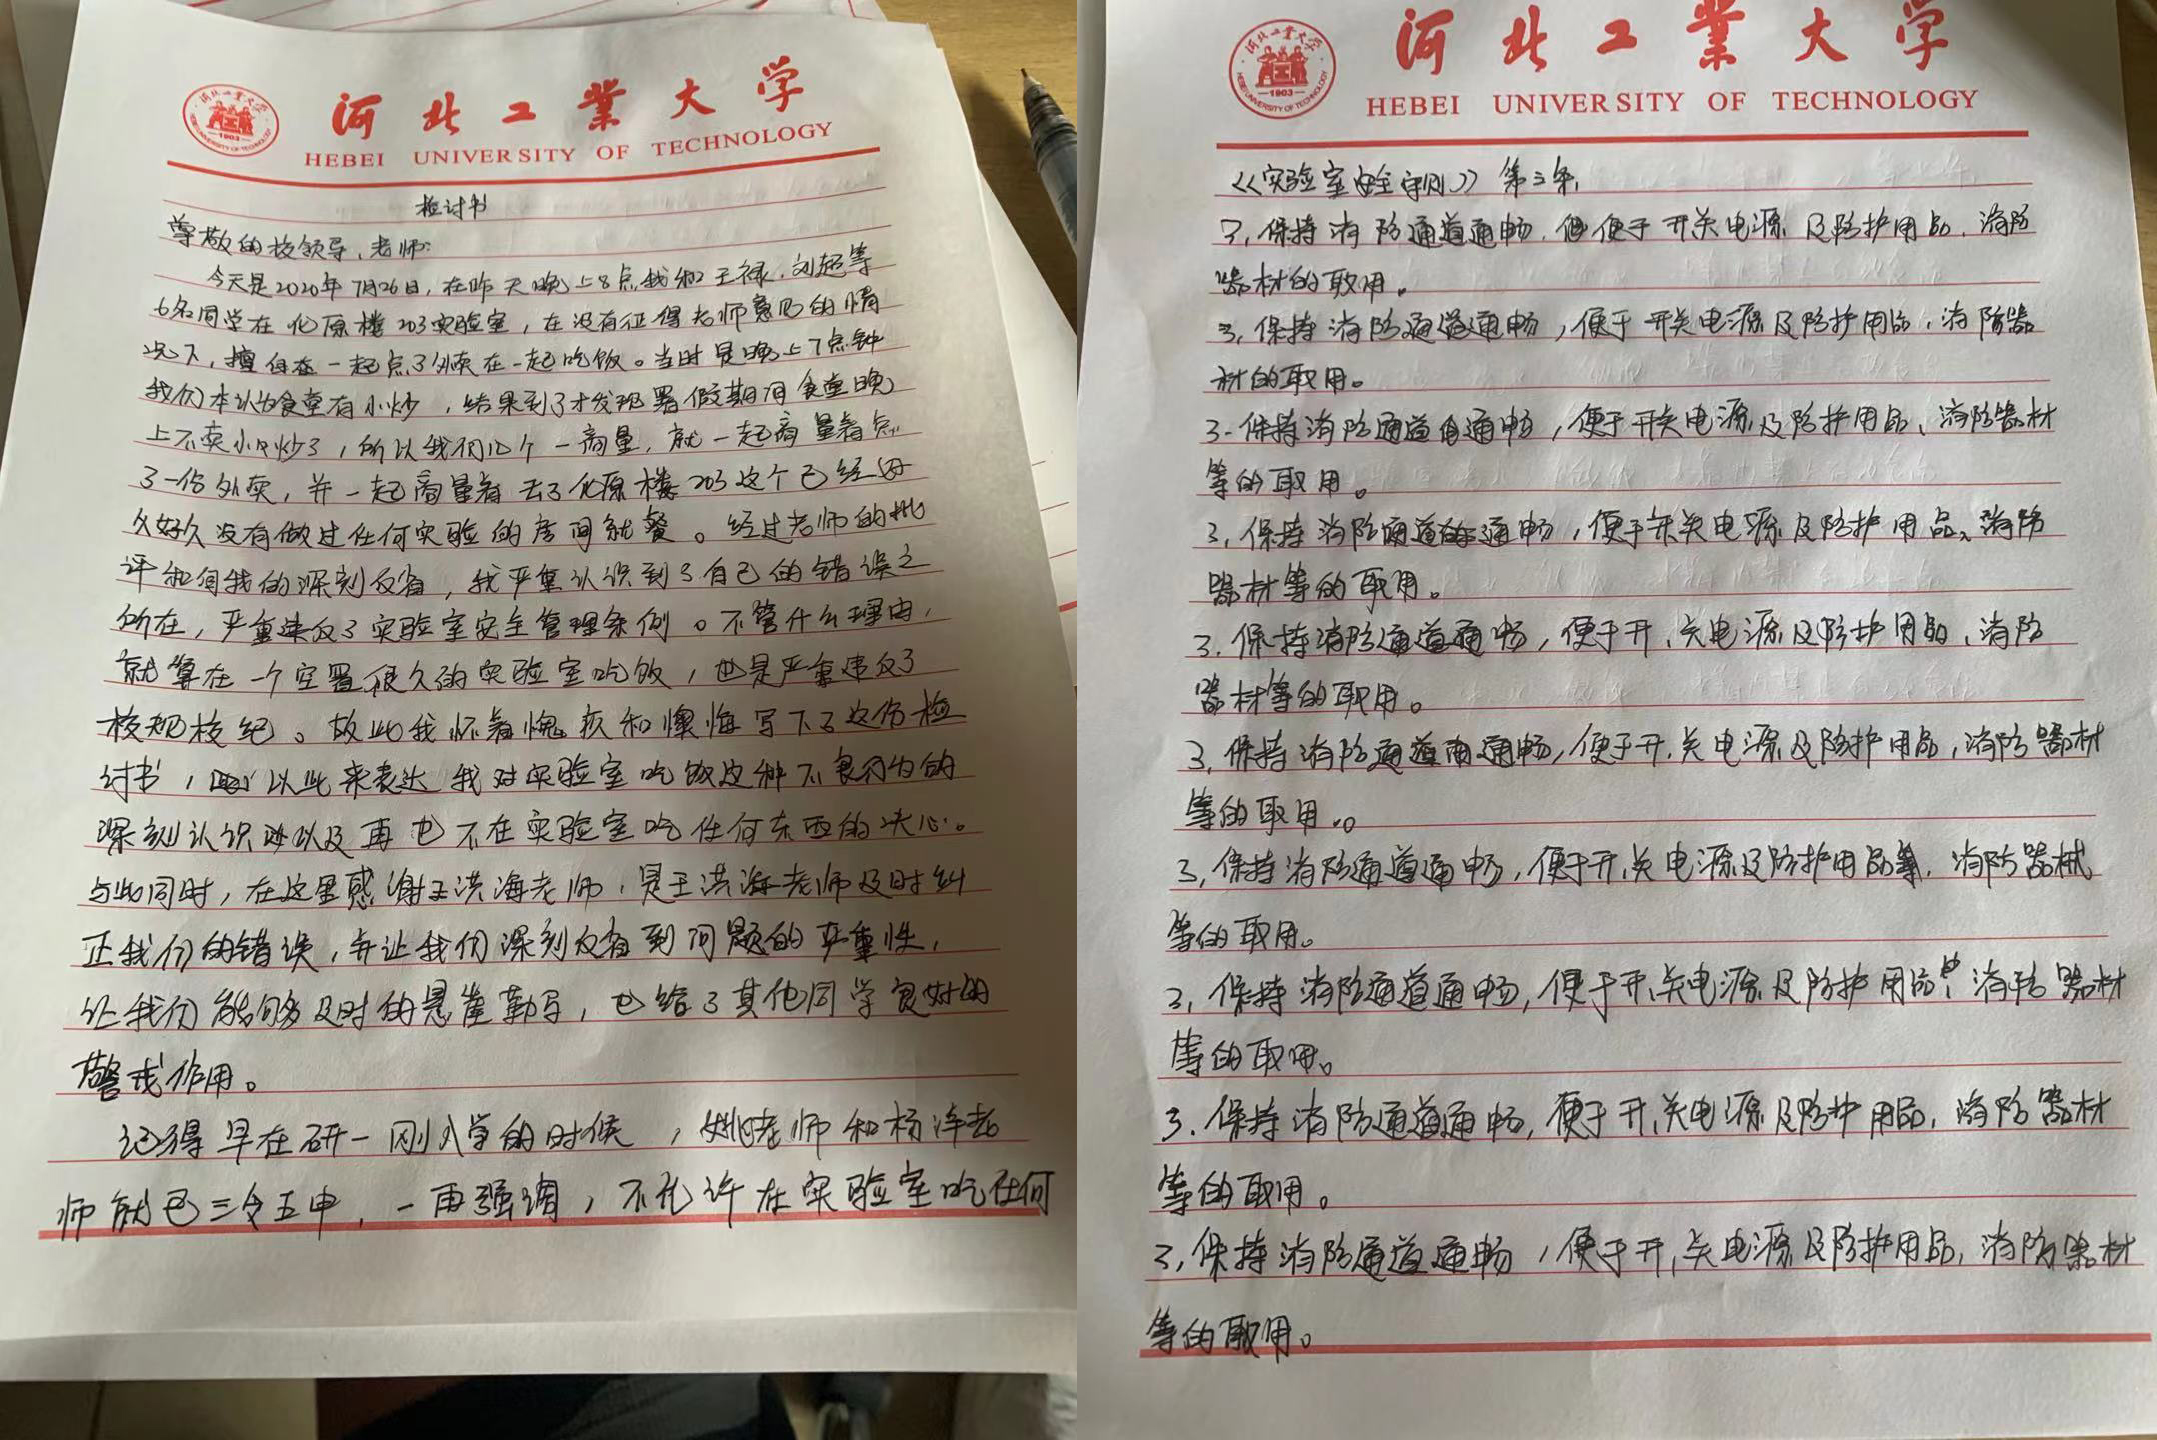 河北工业大学
1903
HEBEI UNIVERSITY OF TECHNOLOGY
检讨书
尊敬的校领导、老师:
今天是2020年7月26日,在昨天晚上8点我和王禄、刘超等
6名同学在化原楼203实验室,在没有征得老师意见的情
况下,擅自在一起点了外卖在一起吃饭。当时是晚上7点钟
我们本认为食堂有小炒,结果到了才发现署假期间食堂晚
上不卖小炒了,所以我们几个一商量,就一起商量着点
了一份外卖,并一起商量着去了化原楼203这个已经好
久好久没有做过任何实验的房间就餐。经过老师的批
评和自我的深刻反省,我严重认识到了自己的错误之
所在,严重违反了实验室安全管理条例。不管什么理由,
就算在一个空置很久的实验室吃饭,也是严重违反了
校规校纪。故此我怀着愧疚和懊悔写下了这份检
讨书,以此来表达我对实验室吃饭这种不良行为的
深刻认识以及再也不在实验室吃任何东西的决心。
与此同时,在这里感谢王洪海老师,是王洪海老师及时纠
正我们的错误,并让我们深刻反省到问题的严重性,
让我们能够及时的悬崖勒马,也给了其他同学良好的
警戒作用。
记得早在研一刚入学的时候,老师和杨泽老
师就已三令五申,一再强调,不允许在实验室吃任何
河北工业大学
1903
HEBEI UNIVERSITY OF TECHNOLOGY
《实验室安全守则》第三条,
3,保持消防通道通畅,便于开关电源及防护用品、消防
器材的取用。
3,保持消防通道通畅,便于开关电源及防护用品,消防器
材的取用。
3.保持消防通道通畅,便于开关电源及防护用品、消防器材
等的取用。
3,保持消防通道通畅,便于开关电源及防护用品、消防
器材等的取用。
3.保持消防通道通畅,便于开、关电源及防护用品、消防
器材等的取用。
3,保持消防通道通畅,便于开、关电源及防护用品,消防器材
等的取用。
3,保持消防通道通畅,便于开、关电源及防护用品,消防器械
等的取用。
3,保持消防通道通畅,便于开、关电源及防护用品,消防器材
等的取用。
3.保持消防通道通畅,便于开、关电源及防护用品,消防器材
等的取用。
3,保持消防通道通畅,便于开、关电源及防护用品,消防器材
等的取用。